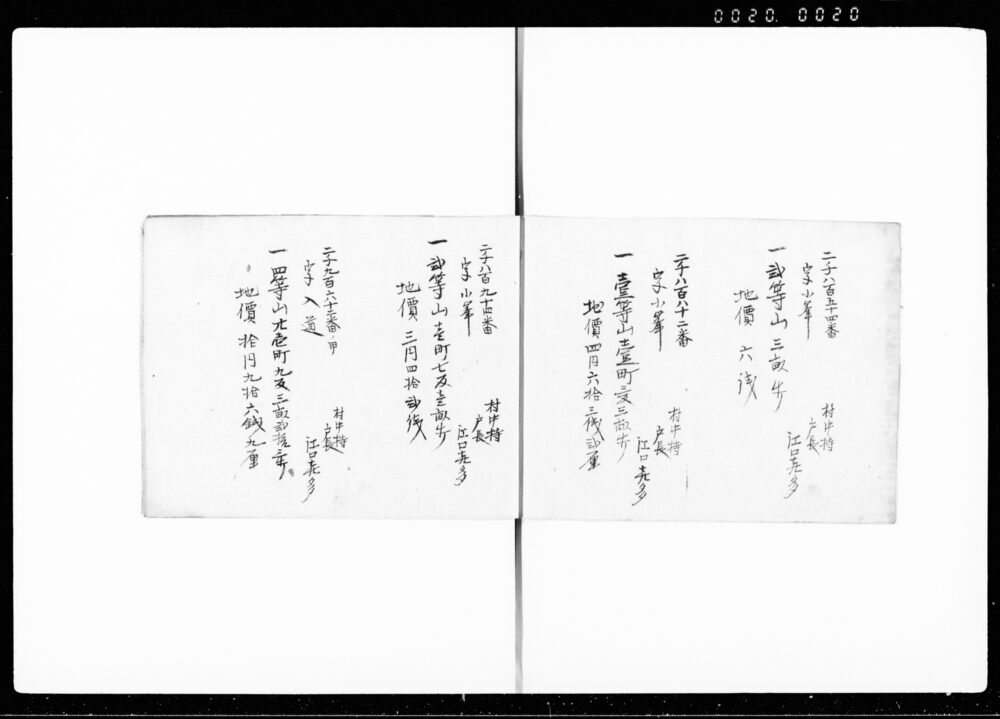 0020. 0020
二千八百五十四番
字小峯
一 弐等山 三畝歩
地價 六銭
村中持
戸長
江口喜多
二千八百八十二番
字小峯
一 壹等山壹町三反三畝歩
地價四円六拾三銭弐厘
村中持
戸長
江口喜多
二千八百九十四番
字小峯
一 弐等山壹町七反壹畝歩
地價 三円四拾弐銭
村中持
戸長
江口喜多
二千九百六十二番ノ甲
字 入道
一 四等山 壱町九反三畝弐拾歩
地價 拾円九拾六銭九厘
村中持
戸長
江口喜多